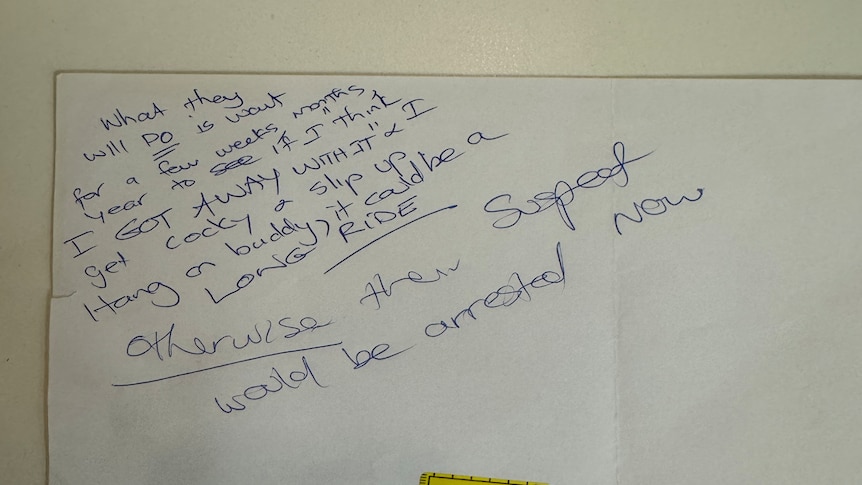 What they
will DO is wait
for a few weeks months
year to see if I "think
I GOT AWAY WITH IT" & I
get cocky & slip up
Hang on buddy, it could be a
LONG RIDE
Otherwise their Suspect
would be arrested NOW